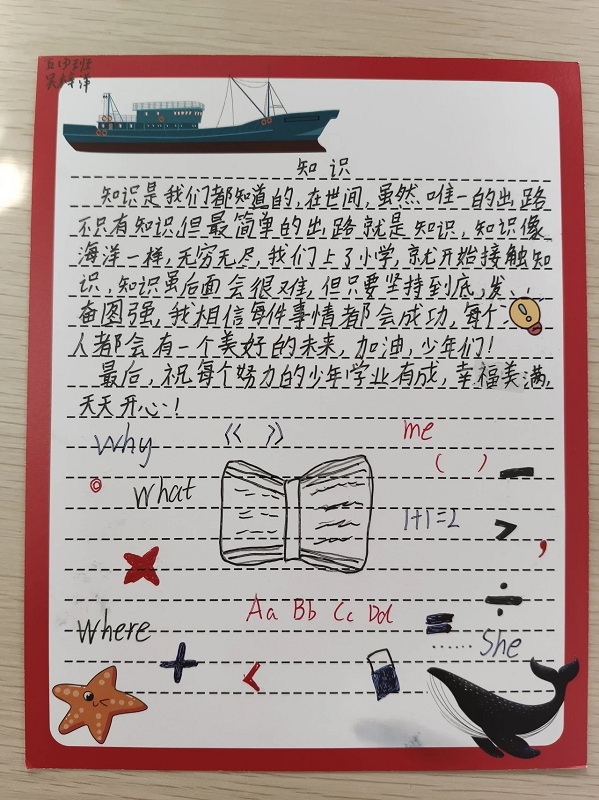 知识
知识是我们都知道的,在世间,虽然唯一的出路
不只有知识,但最简单的出路就是知识,知识像
海洋一样,无穷无尽,我们上了小学,就开始接触知
识,知识虽后面会很难,但只要坚持到底,发
奋图强,我相信每件事情都会成功,每个
人都会有一个美好的未来,加油,少年们!
最后,祝每个努力的少年学业有成,幸福美满,
天天开心!
why 《 》 me
( ) -
what
1+1=2
> ,
÷
Aa Bb Cc Dd
=
where …… She
+ <